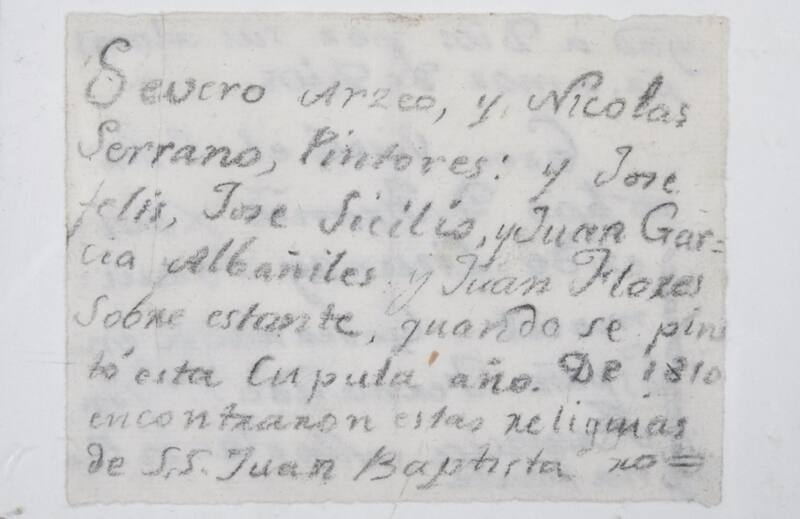 Severo Arzeo, y Nicolas
Serrano, Pintores: y Jose
felis, Jose Sicilio, y Juan Gar=
cia Albañiles y Juan Flores
Sobre estante, quando se pin
tó esta Cupula año. De 1810
encontraron estas religuias
de S.S. Juan Baptista ro=